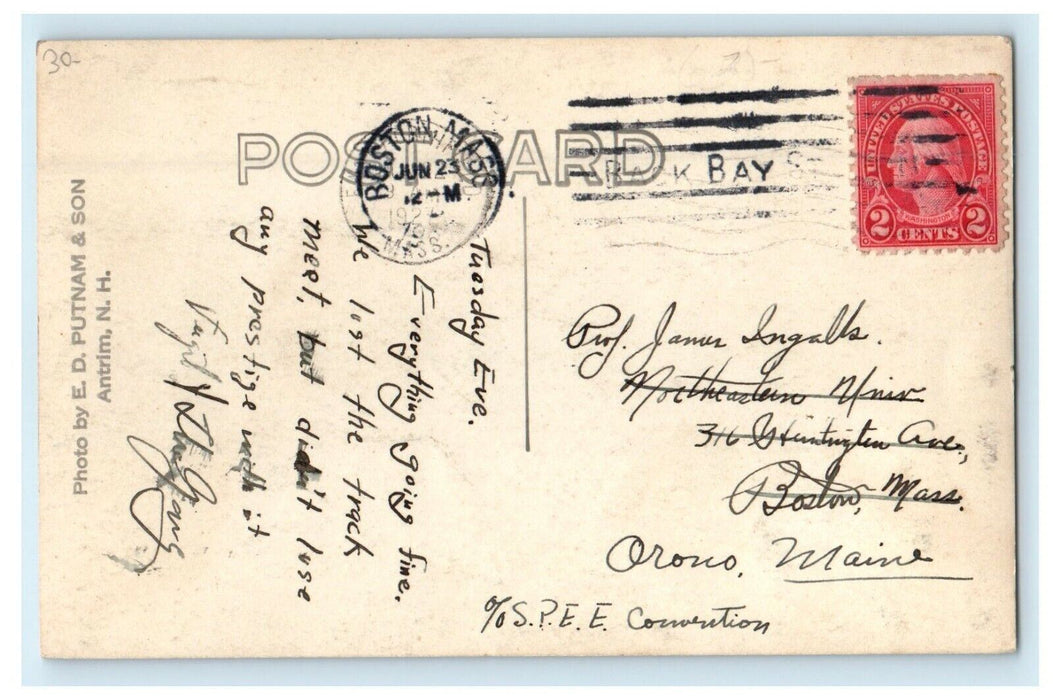 30-
POST CARD
BOSTON, MASS.
JUN 23
12 M
192
MASS.
BACK BAY
UNITED STATES POSTAGE
WASHINGTON
2 CENTS 2
Photo by E. D. PUTNAM & SON
Antrim, N. H.
Tuesday Eve.
Everything going fine.
We lost the track
meet, but didn't lose
any prestige with it
Prof. James Ingalls.
Northeastern Univ
316 Huntington Ave.,
Boston, Mass.
Orono, Maine
c/o S.P.E.E. Convention